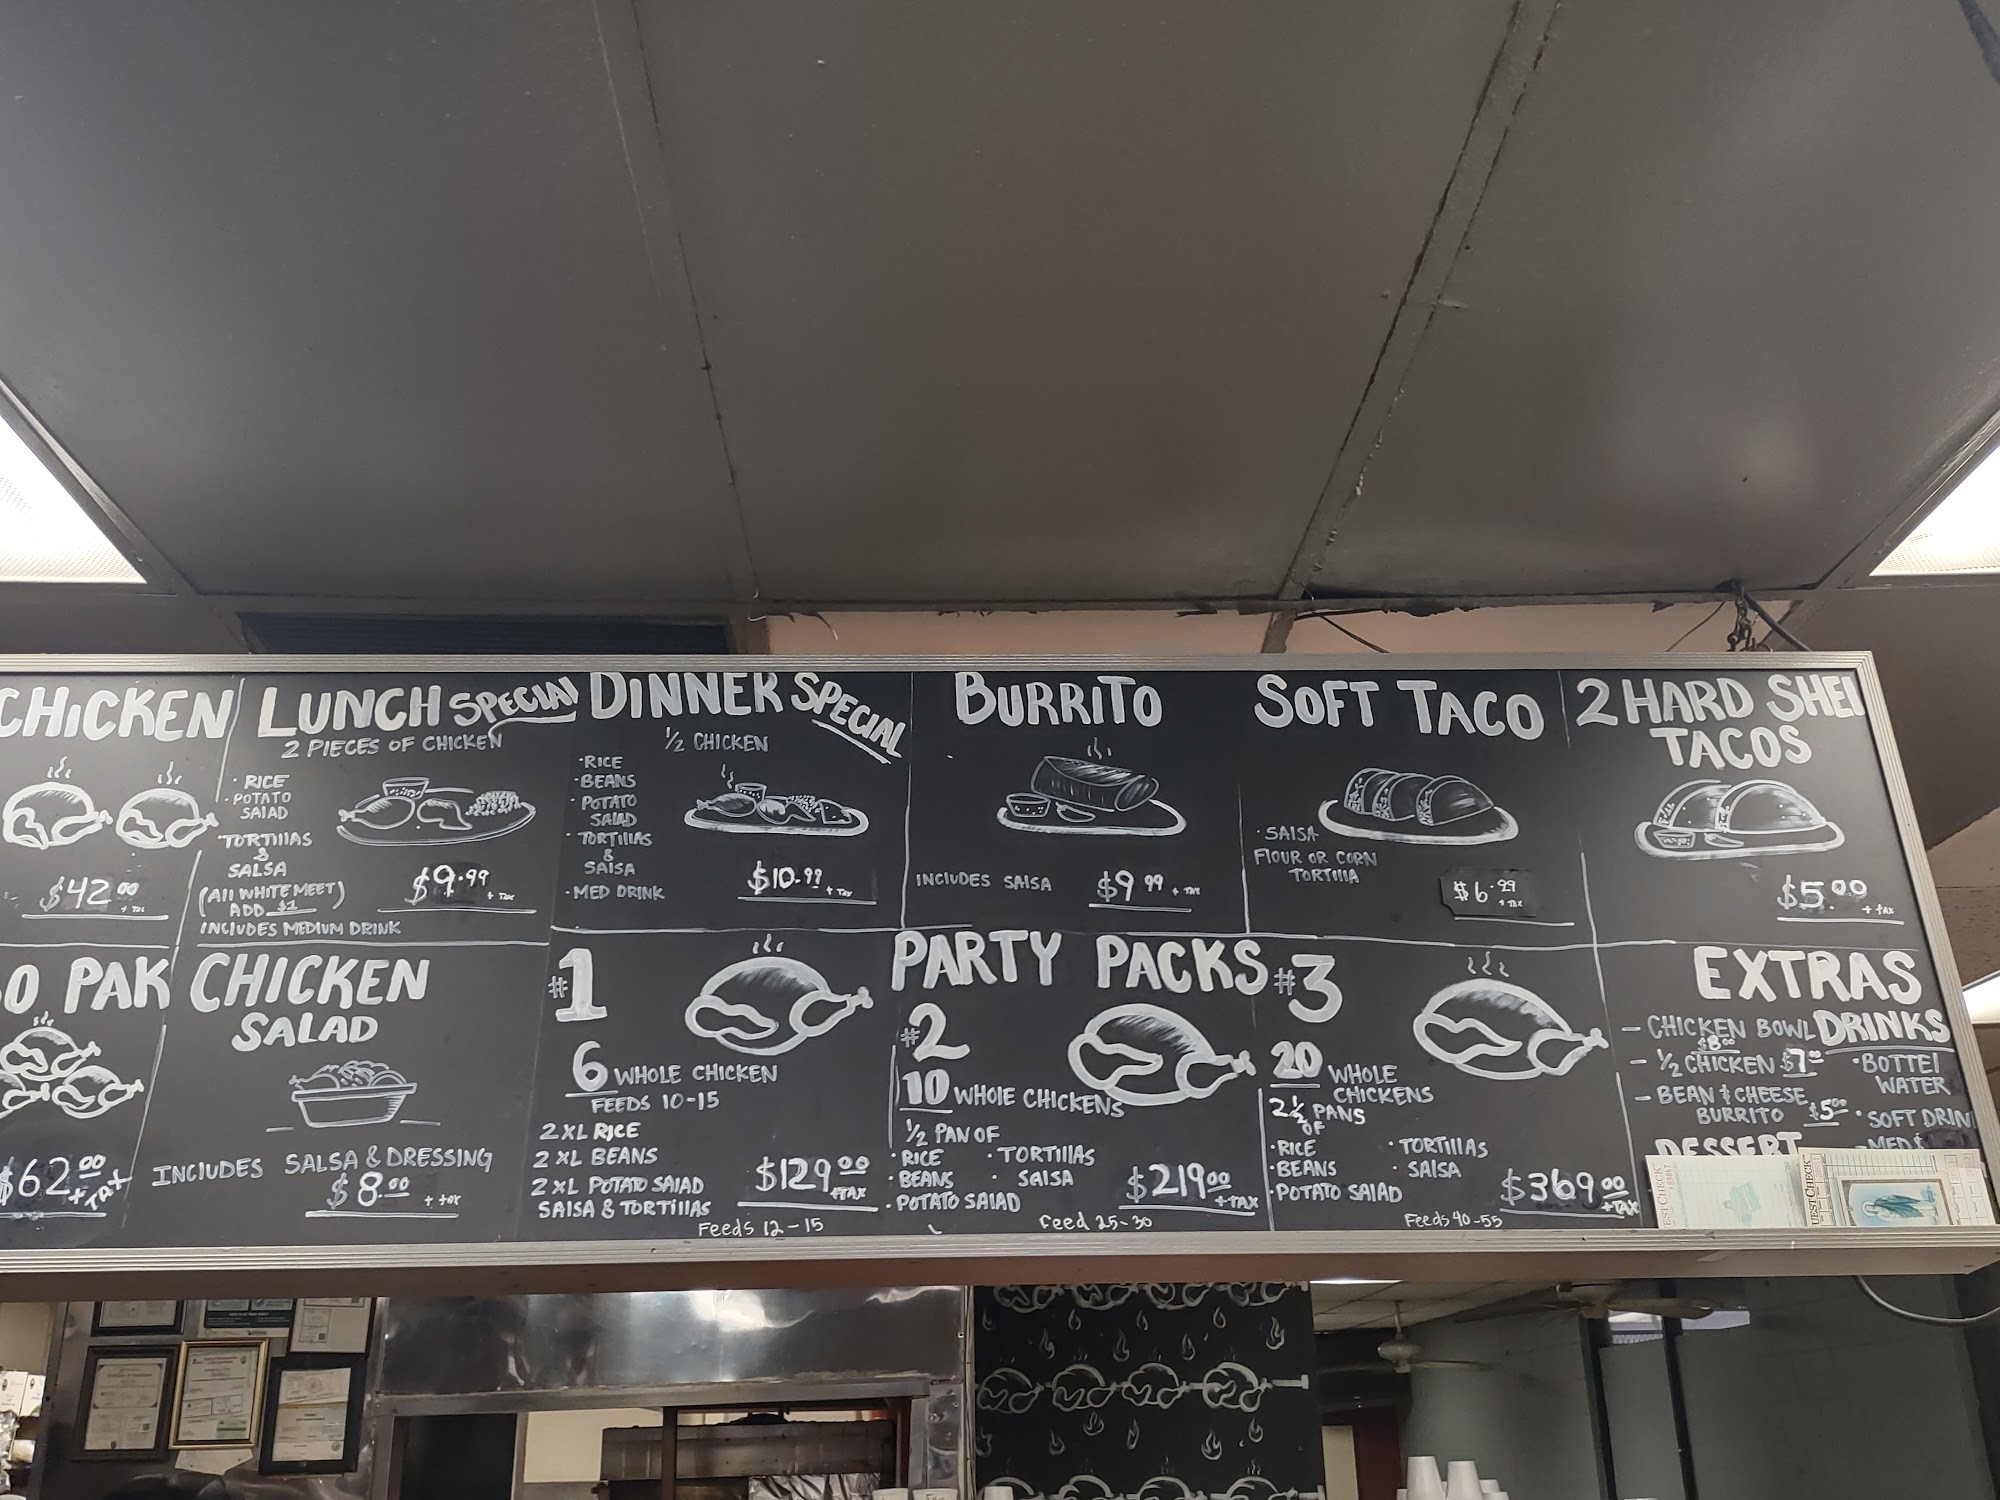 CHICKEN
$42.00
+ TAX
LUNCH SPECIAL
2 PIECES OF CHICKEN
· RICE
· POTATO
SALAD
· TORTILLAS
&
SALSA
(All WHITE MEET)
ADD $1
INCLUDES MEDIUM DRINK
$9.99 + TAX
DINNER SPECIAL
½ CHICKEN
· RICE
· BEANS
· POTATO
SALAD
· TORTILLAS
&
SALSA
· MED DRINK
$10.99
+ TAX
BURRITO
INCLUDES SALSA
$9 99 + TAX
SOFT TACO
· SALSA
FLOUR OR CORN
TORTILLA
$6.99
+ TAX
2 HARD SHEL
TACOS
$5.00
+ tax
O PAK
$62.00
+TAX
CHICKEN
SALAD
INCLUDES SALSA & DRESSING
$8.00 + tax
PARTY PACKS
#1
6 WHOLE CHICKEN
FEEDS 10-15
2 XL RICE
2 XL BEANS
2 XL POTATO SALAD
SALSA & TORTILLAS
$129.00
+TAX
Feeds 12-15
#2
10 WHOLE CHICKENS
½ PAN OF
· RICE
· BEANS
· POTATO SALAD
· TORTILLAS
· SALSA
$219.00
+TAX
Feed 25-30
#3
20 WHOLE
CHICKENS
2½ PANS
OF
· RICE
· BEANS
· POTATO SALAD
· TORTILLAS
· SALSA
$369.00
+TAX
Feeds 40-55
EXTRAS
- CHICKEN BOWL
$8.00
- ½ CHICKEN $7.00
- BEAN & CHEESE
BURRITO $5.00
DRINKS
· BOTTEL
WATER
· SOFT DRIN
- MED $
DESSERT
UESTCHECK
UESTCHECK